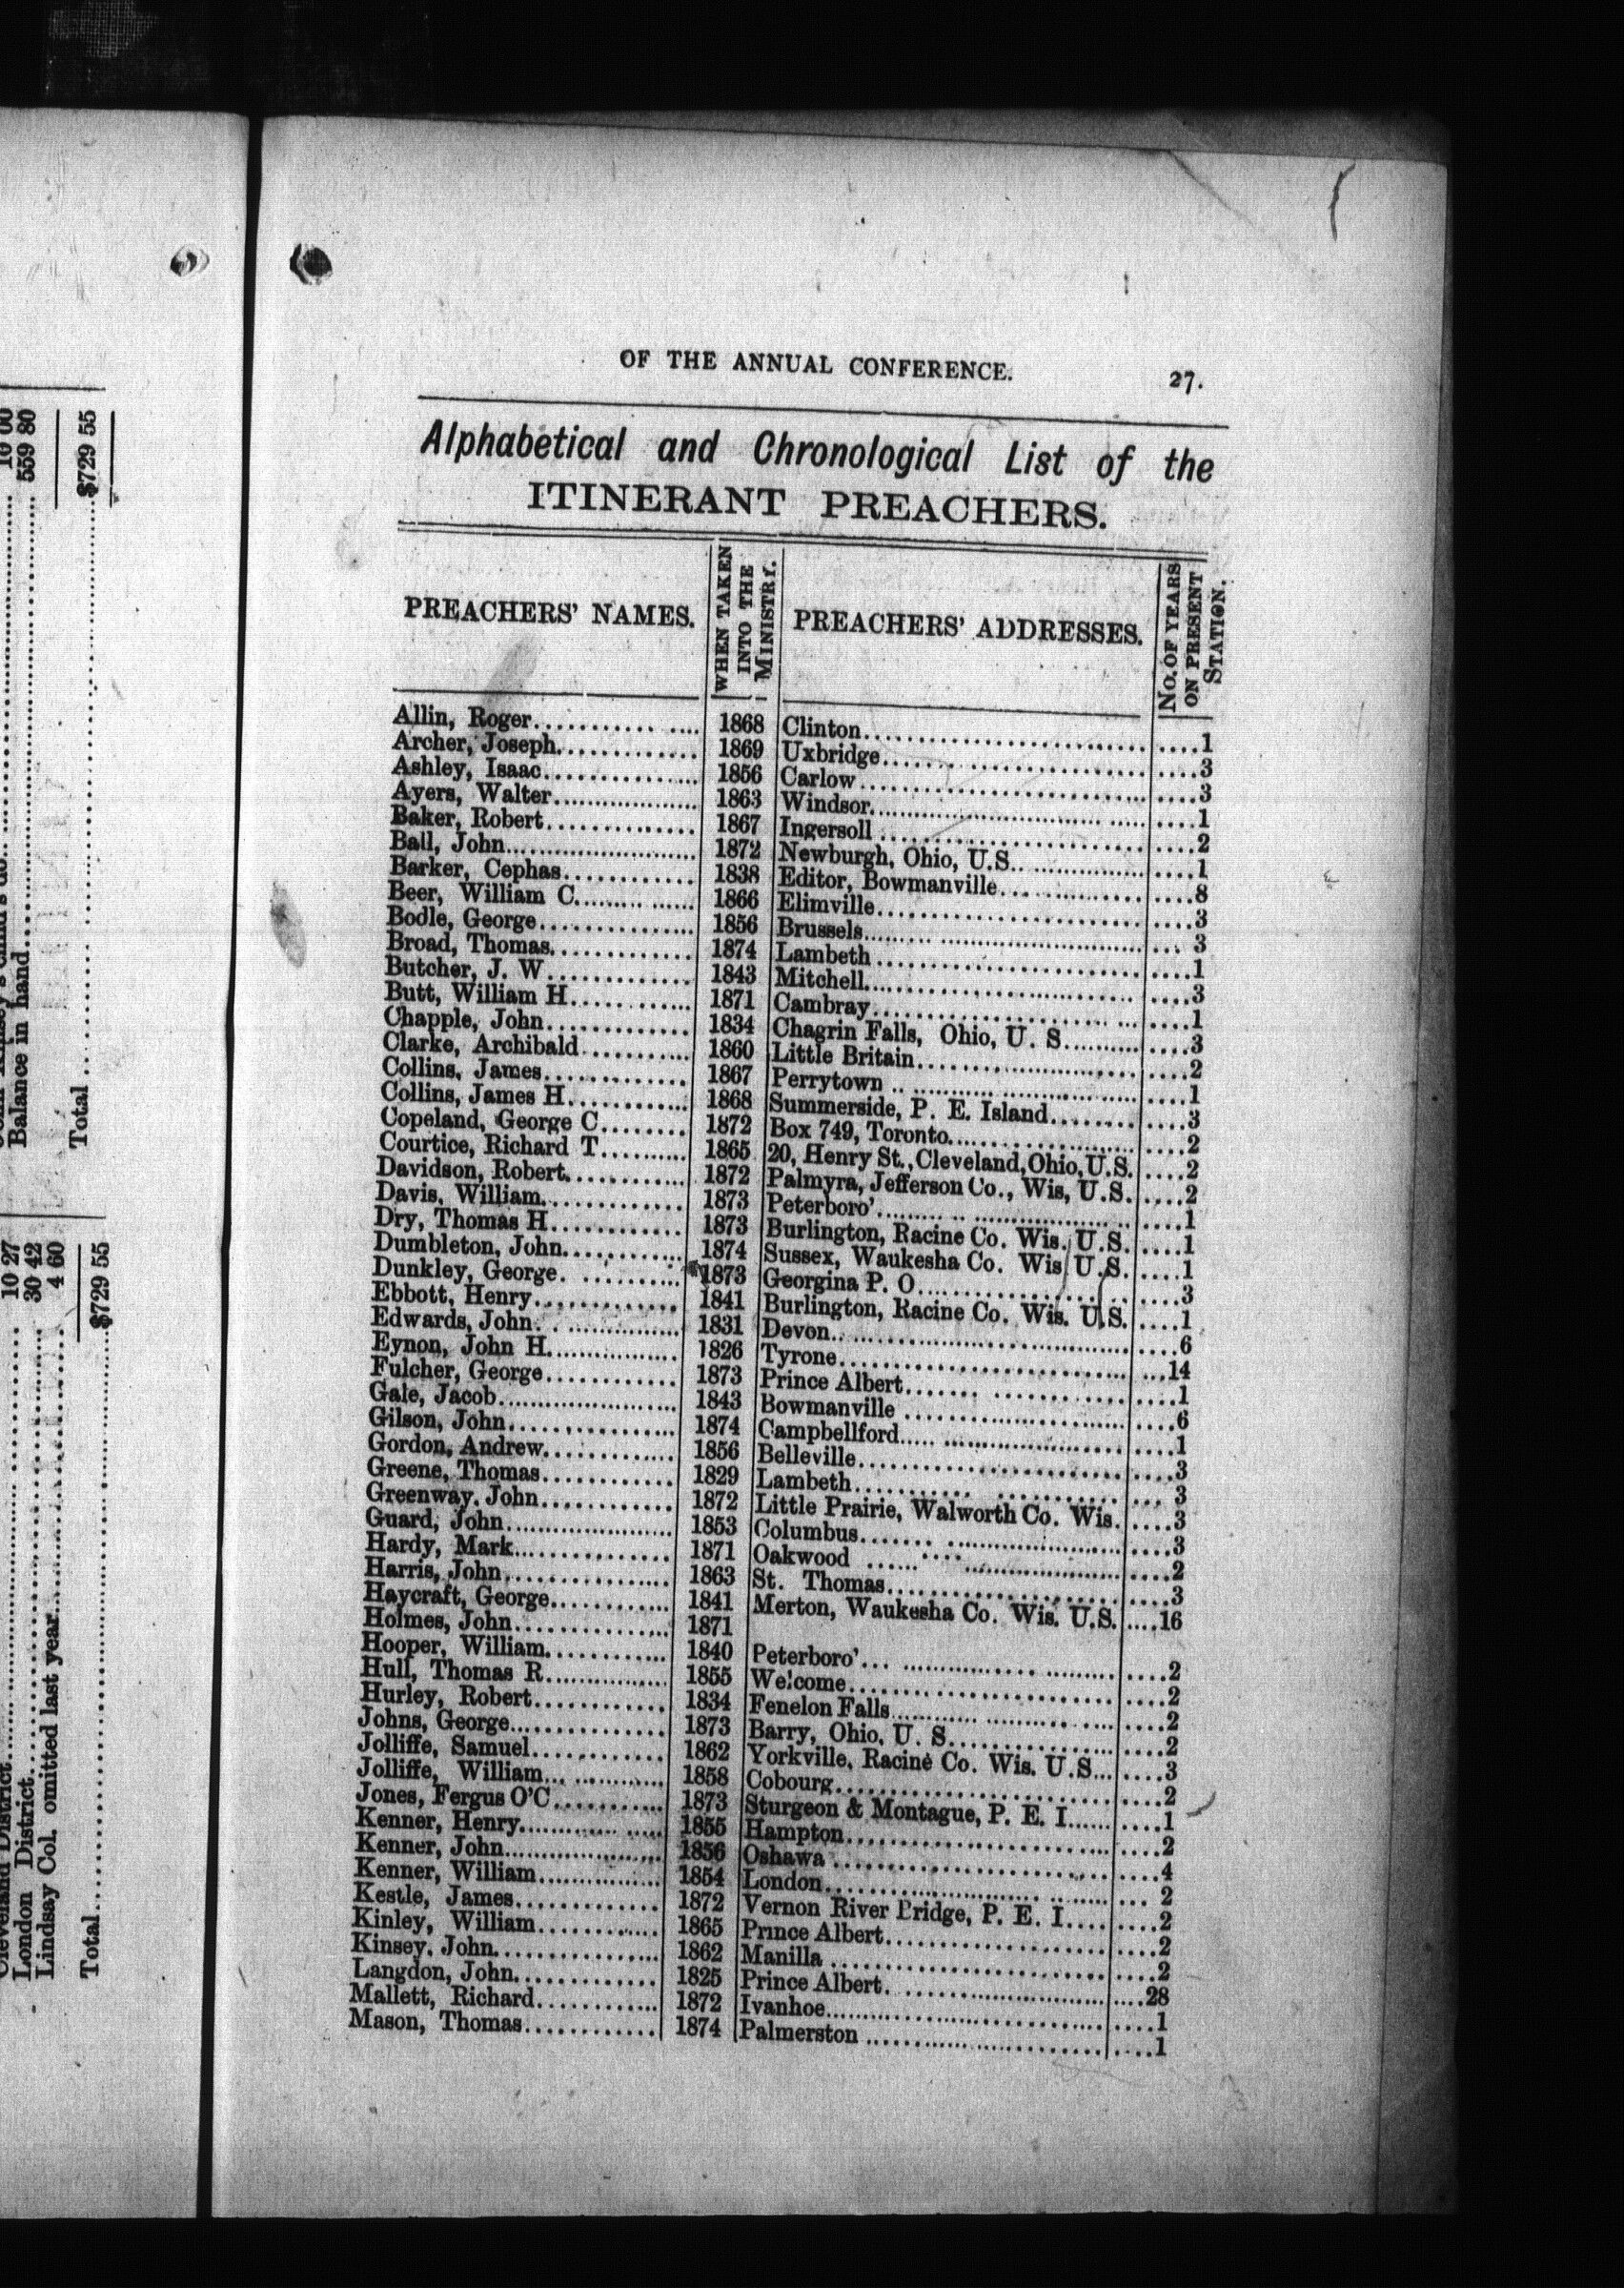 10 00
559 80
$729 55
Balance in hand
Total
10 27
30 42
4 60
$729 55
Cleveland District
London District
Lindsay Col. omitted last year
Total
OF THE ANNUAL CONFERENCE. 27.
Alphabetical and Chronological List of the
ITINERANT PREACHERS.
PREACHERS' NAMES.
WHEN TAKEN
INTO THE
MINISTRY.
PREACHERS' ADDRESSES.
NO. OF YEARS
ON PRESENT
STATION.
Allin, Roger 1868 Clinton 1
Archer, Joseph 1869 Uxbridge 3
Ashley, Isaac 1856 Carlow 3
Ayers, Walter 1863 Windsor 1
Baker, Robert 1867 Ingersoll 2
Ball, John 1872 Newburgh, Ohio, U.S. 1
Barker, Cephas 1838 Editor, Bowmanville 8
Beer, William C. 1866 Elimville 3
Bodle, George 1856 Brussels 3
Broad, Thomas 1874 Lambeth 1
Butcher, J. W 1843 Mitchell 3
Butt, William H 1871 Cambray 1
Chapple, John 1834 Chagrin Falls, Ohio, U. S 3
Clarke, Archibald 1860 Little Britain 2
Collins, James 1867 Perrytown 1
Collins, James H 1868 Summerside, P. E. Island 3
Copeland, George C 1872 Box 749, Toronto 2
Courtice, Richard T 1865 20, Henry St., Cleveland, Ohio, U.S. 2
Davidson, Robert 1872 Palmyra, Jefferson Co., Wis, U.S. 2
Davis, William 1873 Peterboro' 1
Dry, Thomas H 1873 Burlington, Racine Co. Wis. U.S. 1
Dumbleton, John 1874 Sussex, Waukesha Co. Wis U.S. 1
Dunkley, George 1873 Georgina P. O 3
Ebbott, Henry 1841 Burlington, Racine Co. Wis. U.S. 1
Edwards, John 1831 Devon 6
Eynon, John H. 1826 Tyrone 14
Fulcher, George 1873 Prince Albert 1
Gale, Jacob 1843 Bowmanville 6
Gilson, John 1874 Campbellford 1
Gordon, Andrew 1856 Belleville 3
Greene, Thomas 1829 Lambeth 3
Greenway. John 1872 Little Prairie, Walworth Co. Wis. 3
Guard, John 1853 Columbus 3
Hardy, Mark 1871 Oakwood 2
Harris, John 1863 St. Thomas 3
Haycraft, George 1841 Merton, Waukesha Co. Wis. U.S. 16
Holmes, John 1871
Hooper, William 1840 Peterboro' 2
Hull, Thomas R 1855 Welcome 2
Hurley, Robert 1834 Fenelon Falls 2
Johns, George 1873 Barry, Ohio, U. S. 2
Jolliffe, Samuel 1862 Yorkville, Racine Co. Wis. U.S 3
Jolliffe, William 1858 Cobourg 2
Jones, Fergus O'C 1873 Sturgeon & Montague, P. E. I 1
Kenner, Henry 1855 Hampton 2
Kenner, John 1856 Oshawa 4
Kenner, William 1854 London 2
Kestle, James 1872 Vernon River Bridge, P. E. I 2
Kinley, William 1865 Prince Albert 2
Kinsey, John 1862 Manilla 2
Langdon, John 1825 Prince Albert 28
Mallett, Richard 1872 Ivanhoe 1
Mason, Thomas 1874 Palmerston 1